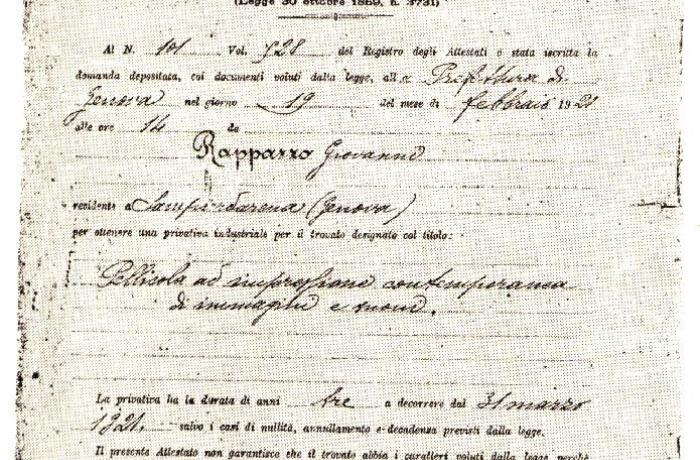 (Legge 30 ottobre 1859, n. 3731)
Al N. 101 Vol. 528 del Registro degli Attestati è stata iscritta la
domanda depositata, coi documenti voluti dalla legge, alla Prefettura di
Genova nel giorno 19 del mese di febbraio 1921
alle ore 14 da
Rappazzo Giovanni
residente a Sampierdarena (Genova)
per ottenere una privativa industriale per il trovato designato col titolo:
Pellicola ad impressione contemporanea
di immagini e suoni.
La privativa ha la durata di anni tre a decorrere dal 31 marzo
1921. salvo i casi di nullità, annullamento e decadenza previsti dalla legge.
Il presente Attestato non garantisce che il trovato abbia i caratteri voluti dalla legge perchè